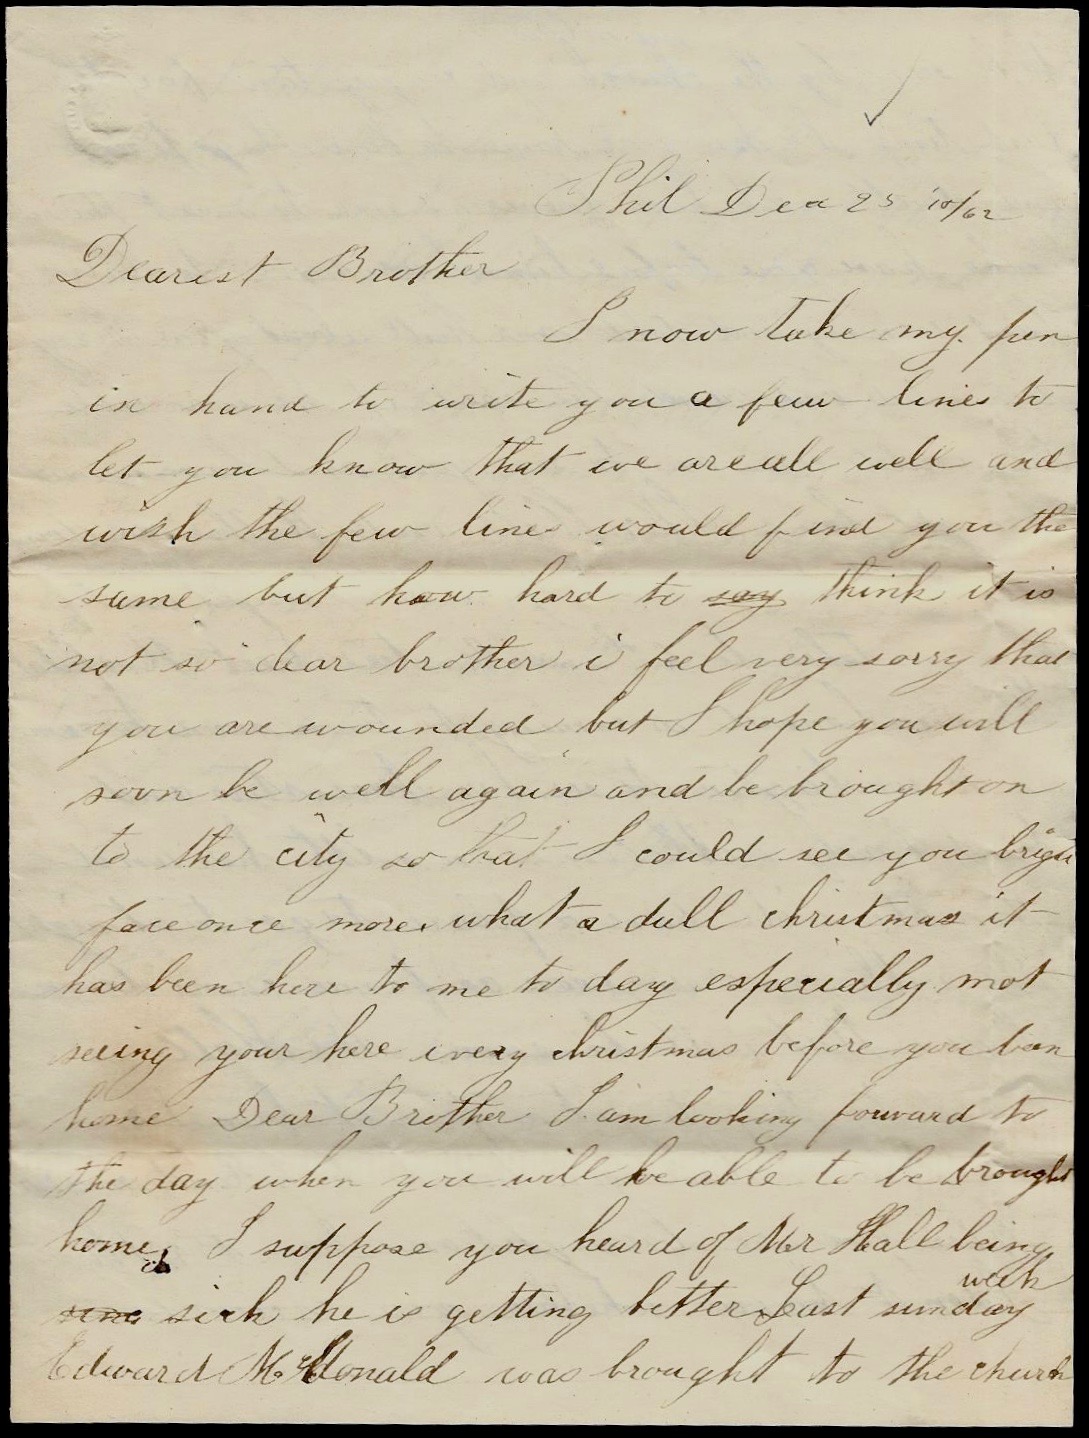 Phil Dec 25 18/62
Dearest Brother
I now take my pen
in hand to write you a few lines to
let you know that we are all well and
wish the few line would find you the
same but how hard to say think it is
not so dear brother i feel very sorry that
you are wounded but I hope you will
soon be well again and be brought on
to the city so that I could see you brigh
face once more. what a dull christmas it
has been here to me to day especially mot
seeing your here every christmas before you ben
home Dear Brother I am looking forward to
the day when you will be able to be brought
home. I suppose you heard of Mr Hall being
sick he is getting better Last sunday week
Edward McDonald was brought to the church